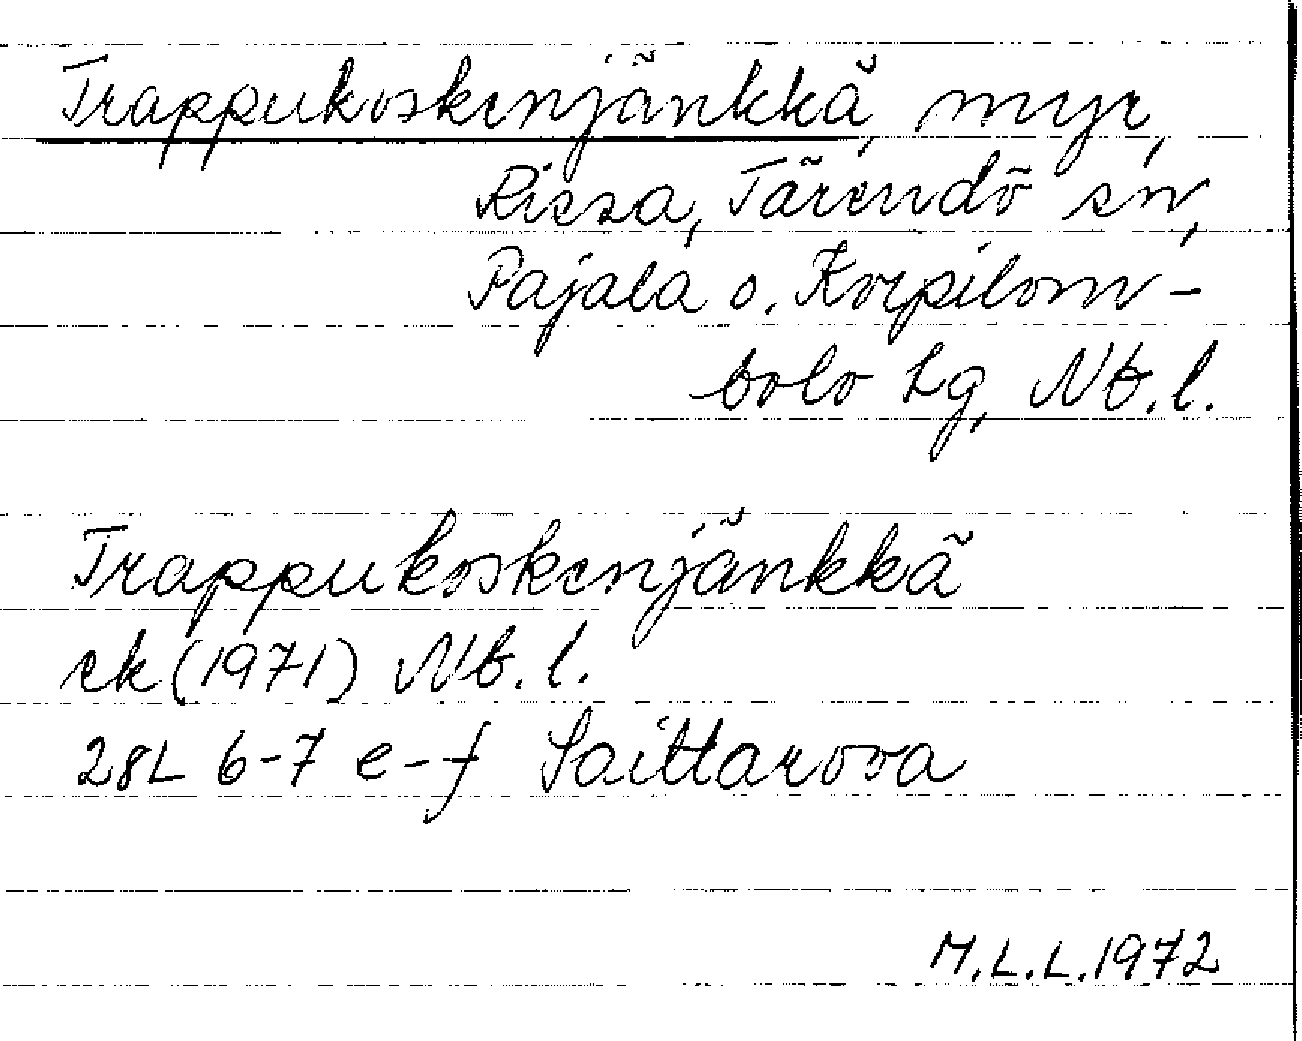 Trappukoskenjänkkä, myr,
Rissa, Tärendö sn,
Pajala o. Korpilom-
bolo lg, Nb.l.
Trappukoskenjänkkä
ek (1971) Nb.l.
28L 6-7 e-f Saittarova
M.L.L. 1972